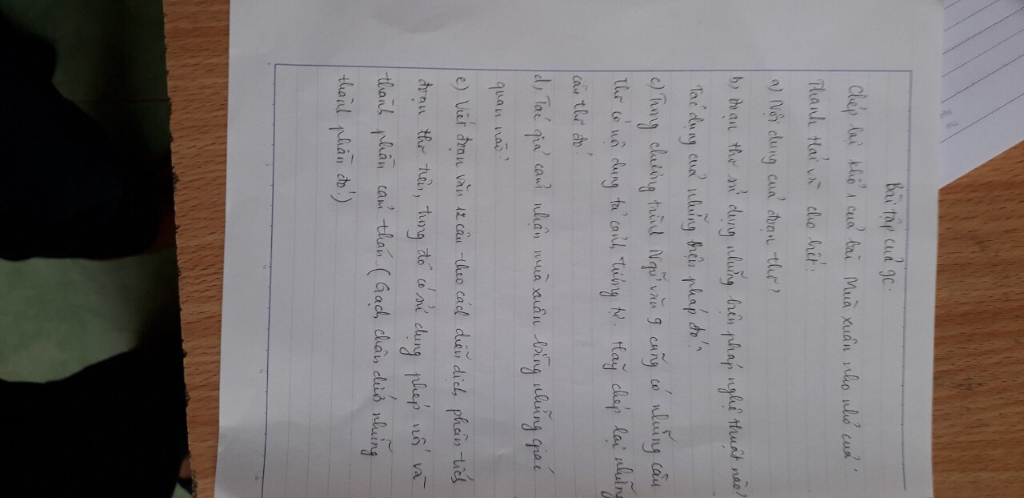 Bài tập của 9C.
Chép lại khổ 1 của bài Mùa xuân nho nhỏ của
Thanh Hải và cho biết:
a) Nội dung của đoạn thơ?
b) Đoạn thơ sử dụng những biện pháp nghệ thuật nào?
Tác dụng của những biện pháp đó?
c) Trong chương trình Ngữ văn 9 cũng có những câu
thơ có nội dung tả cảnh tương tự. Hãy chép lại những
câu thơ đó?
d) Tác giả cảm nhận mùa xuân bằng những giác
quan nào?
e) Viết đoạn văn 12 câu theo cách diễn dịch phân tích
đoạn thơ trên, trong đó có sử dụng phép nối và
thành phần cảm thán. (Gạch chân dưới những
thành phần đó.)